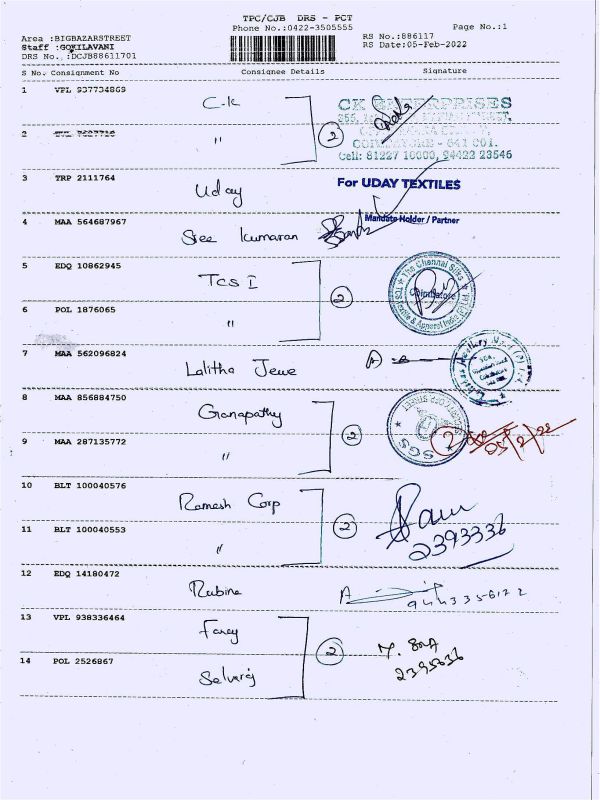 TPC/CJB DRS - PCT
Phone No.:0422-3505555
Page No.:1
Area :BIGBAZARSTREET
Staff :GOKILAVANI
DRS No. :DCJB88611701
RS No.:886117
RS Date:05-Feb-2022
S No. Consignment No Consignee Details Signature
1 VPL 937734869 C.K
CK ENTERPRISES
COIMBATORE - 641 001.
Cell: 81227 16000, 94422 23546
2 " 2
3 TRP 2111764 Uday
For UDAY TEXTILES
Mandate Holder / Partner
4 MAA 564687967 Sree Kumaran
5 EDQ 10862945 TCS I
The Chennai Silks
Coimbatore
2
6 POL 1876065 "
7 MAA 562096824 Lalitha Jewe
8 MAA 856884750 Ganapathy
SGS
2
9 MAA 287135772 "
10 BLT 100040576 Ramesh Corp
2
2393336
11 BLT 100040553 "
12 EDQ 14180472 Rubine
13 VPL 938336464 Faray
2
2395636
14 POL 2526867 Selvaraj